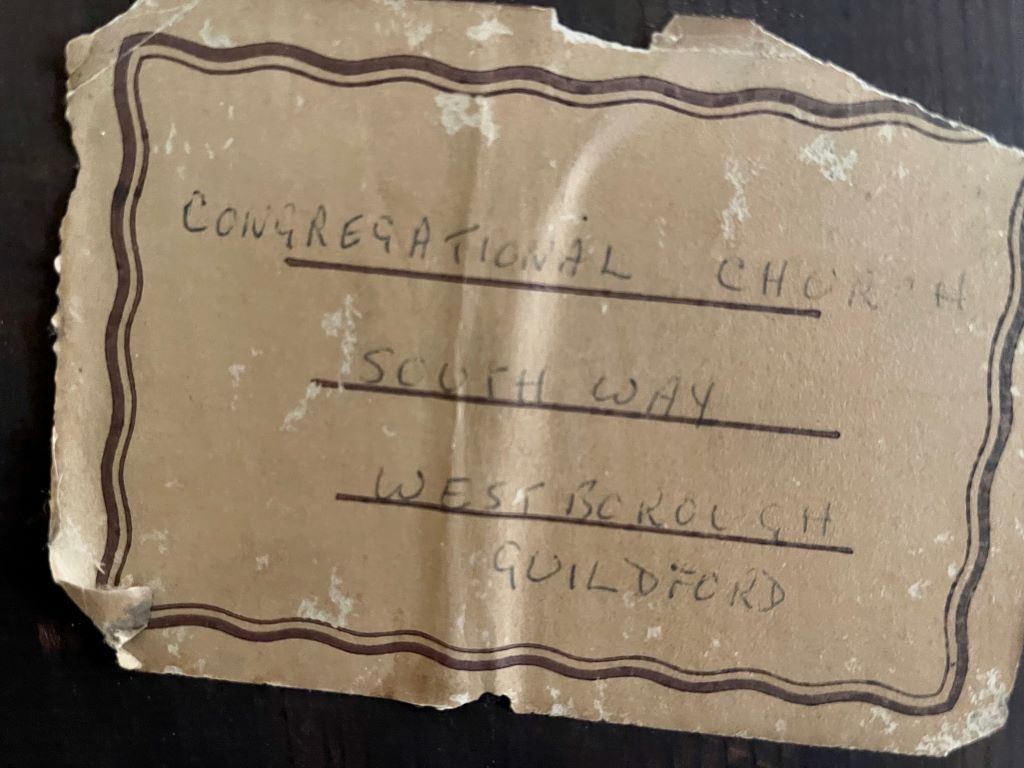 CONGREGATIONAL CHURCH
SOUTH WAY
WESTBOROUGH
GUILDFORD